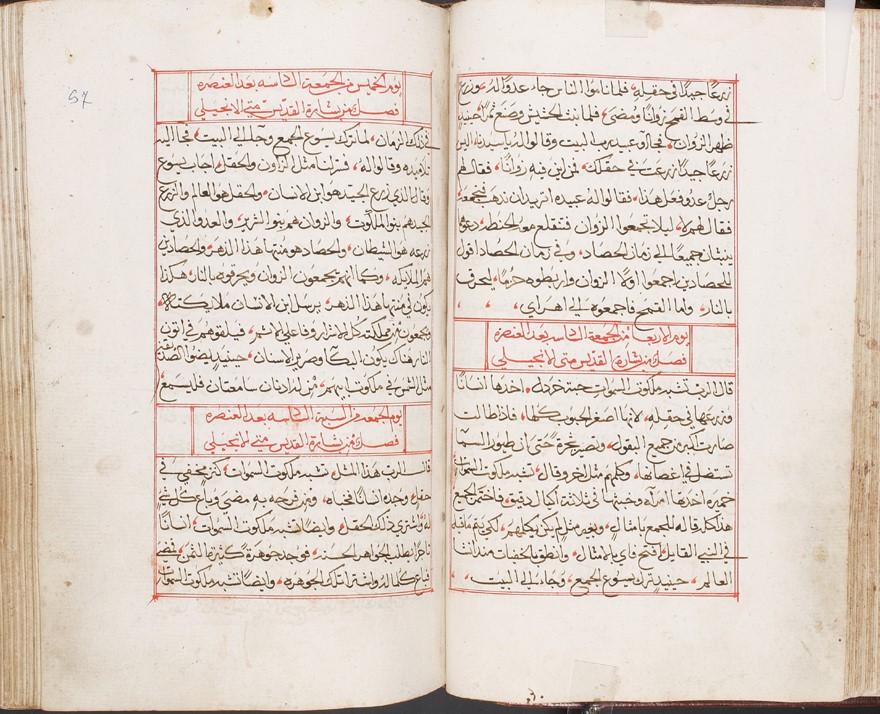 زرعًا جيدًا في حقله، فلما ناموا الناس جاء عدوًا له، وزرع
في وسط القمح زوانًا ومضى، فلما نبت الحشيش وصنع ثمرًا حينيذٍ
ظهر الزوان، فجاؤ عبيد رب البيت وقالوا له، يا سيدنا، اليس
زرعًا جيدًا زرعت في حقلك، فمن اين فيه زوانًا، فقال لهم
رجل عدو فعل هذا، فقالوا له عبيده اتريد ان نذهب فنجمعه
فقال لهم لا، ليلا تجمعوا الزوان، فتقلع معه الحنطه، دعوهما
ينبتان جميعًا الي زمان الحصاد، وفي زمان الحصاد اقول
للحصادين اجمعوا اولًا الزوان واربطوه حزمًا، ليحرق
بالنار، واما القمح فاجمعوه الي اهراي،
يوم الاربعا من الجمعة السادسه بعد العنصره
فصل من بشارة القديس متى الانجيلي
قال الرب تشبه ملكوت السموات حبة خردل، اخذها انسانًا
وزرعها في حقله، لانها اصغر الحبوب كلها، فاذا طالت
صارت اكبر من جميع البقول، وتصير شجرة حتى ان طيور السما
تستضل في اغصانها، وكلمهم مثل اخر وقال، تشبه ملكوت السموات
خميره اخذتها امرآه وخبتها في ثلاثة اكيال دقيق، فاختمر الجميع
هذا كله قاله للجمع بامثال، وبغير مثل لم يكن يكلمهم، لكي يتم ما قيل
في النبي القايل، افتح فاي بالامثال، وانطق بالخفيات منذ انشا
العالم، حينيذٍ ترك يسوع الجمع، وجاء الي البيت،
57
يوم الخميس من الجمعة السادسه بعد العنصره
فصل من بشارة القديس متى الانجيلي
في ذلك الزمان، لما ترك يسوع الجمع وجآ الي البيت، فجا اليه
تلاميذه وقالوا له، فسر لنا مثل الزوان والحقل، اجاب يسوع
وقال الذي زرع الجيد هو ابن الانسان، والحقل هو العالم، والزرع
الجيد هم بنوا الملكوت، والزوان هم بنوا الشرير، والعدو الذي
زرعه هو الشيطان، والحصاد هو منتها هذا الدهر، والحصادين
هم الملايكه، وكما انهم يجمعون الزوان ويحرقوه بالنار، هكذا
يكون في منتها هذا الدهر، يرسل ابن الانسان ملايكته
فيجمعون من مملكته كل الاشرار وفاعلي الاثم، فيلقوهم في اتون
النار، هناك يكون البكا وصرير الاسنان، حينيذٍ يضوا الصديقين
مثل الشمس في ملكوت ابيهم، من له اذنان سامعتان فليسمع
يوم الجمعه من السبة السادسه بعد العنصره
فصل من بشارة القديس متى الانجيلي
قال الرب هذا المثل، تشبه ملكوت السموات، كنز مخفي في
حقل، وجده انسانًا فخباه، ومن فرحه به مضى وباع كل شي
له واشتري ذلك الحقل، وايضًا تشبه ملكوت السموات، انسانًا
تاجرًا يطلب الجواهر الحسنه، فوجد جوهرة كثيرة الثمن، فمضى
فباع كلما له واشترا تلك الجوهره، وايضًا تشبه ملكوت السموات